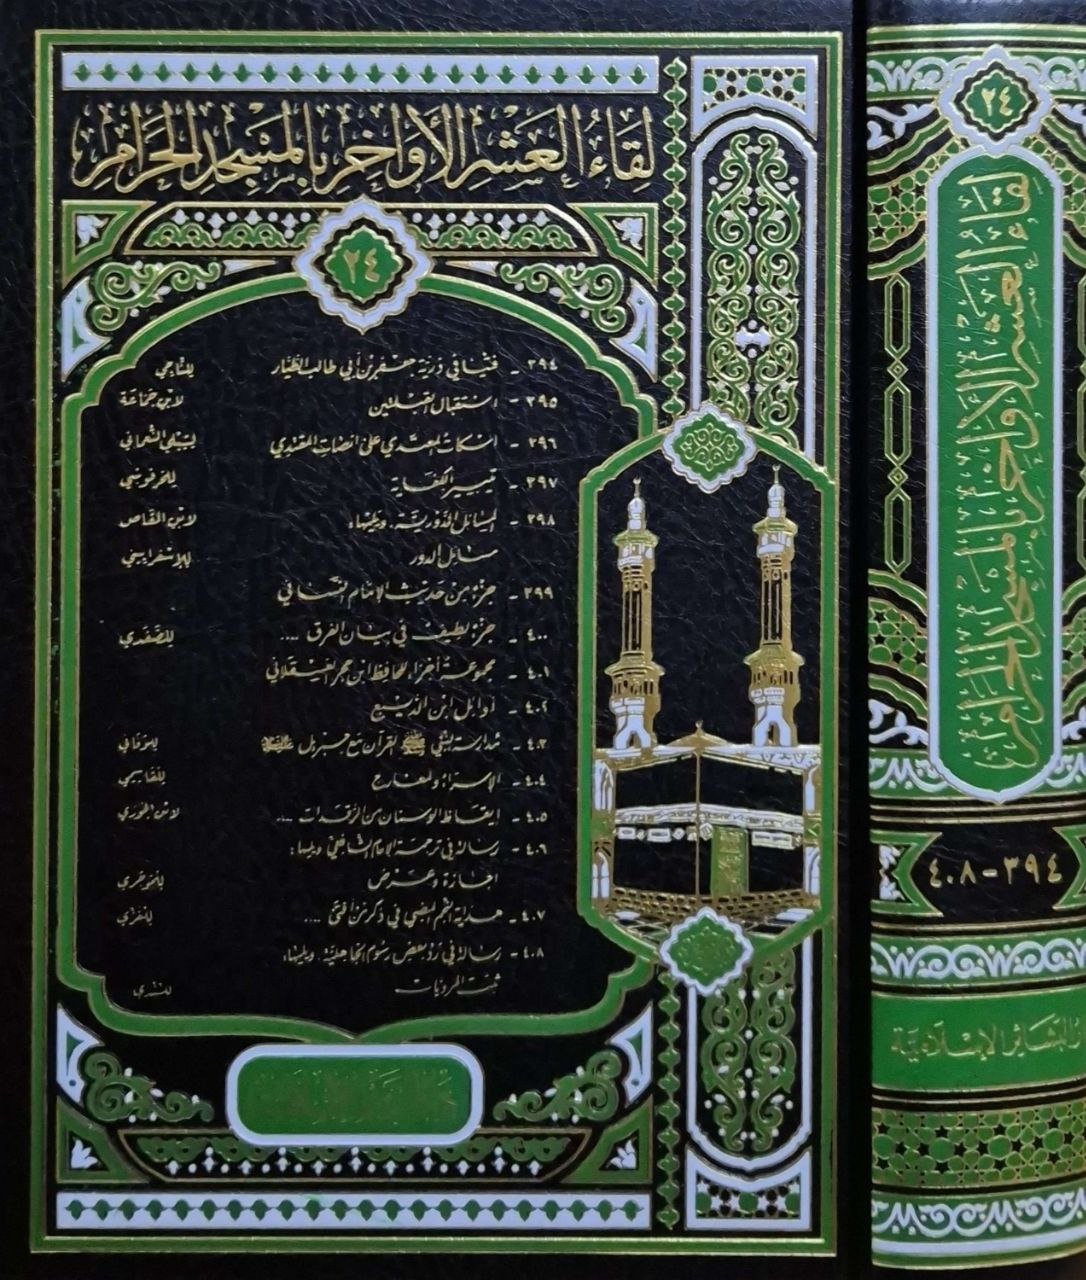 لقاء العشر الأواخر بالمسجد الحرام
٢٤
٣٩٤ - فتيا في ذرية جعفر بن أبي طالب الطيار للتاجي
٣٩٥ - استقبال القبلتين لابن جماعة
٣٩٦ - اسكات المعتدي على انصات المقتدي لشبلي النعماني
٣٩٧ - تيسير الكفاية للخرفوشي
٣٩٨ - المسائل الدورية. ويليها: لابن القاص
مسائل الدور للإسفراييني
٣٩٩ - جزء من حديث الإمام النسائي
٤٠٠ - جزء لطيف في بيان الفرق .... للصفدي
٤٠١ - مجموعة أجزاء للحافظ ابن حجر العسقلاني
٤٠٢ - أوائل ابن الديبع
٤٠٣ - مدارسة النبي ﷺ القرآن مع جبريل
٤٠٤ - الإسراء والمعراج
٤٠٥ - إيقاظ الوسنان من الرقدات .... لابن الجوزي
٤٠٦ - رسالة في ترجمة الإمام الشافعي ويليها:
اجازة وعرض
٤٠٧ - هداية النجم المضي في ذكر من أفتى .... للغزي
٤٠٨ - رسالة في رد بعض رسوم الجاهلية. ويليها:
ثبت المرويات
٢٤
لقاء العشر الأواخر بالمسجد الحرام
٣٩٤-٤٠٨
البشائر الإسلامية